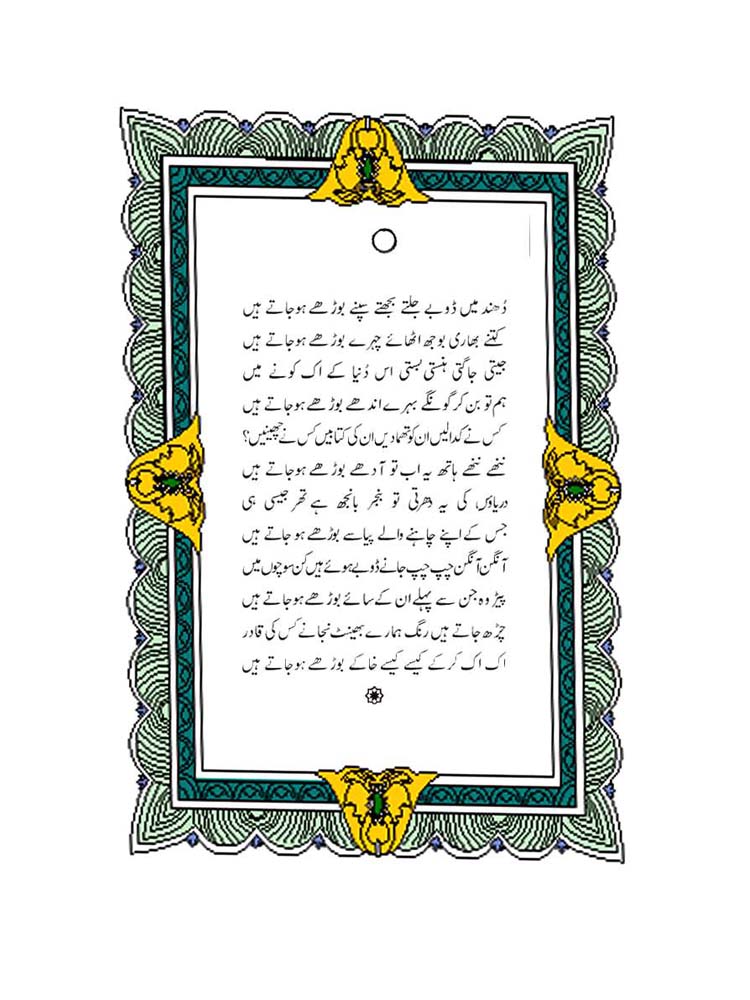 دُھند میں ڈوبے جلتے بجھتے سپنے بوڑھے ہو جاتے ہیں
کتنے بھاری بوجھ اٹھائے چہرے بوڑھے ہو جاتے ہیں
جیتی جاگتی ہنستی بستی اس دُنیا کے اک کونے میں
ہم تو بن کر گونگے بہرے اندھے بوڑھے ہو جاتے ہیں
کس نے کدالیں ان کو تھما دیں ان کی کتابیں کس نے چھینیں؟
ننھے ننھے ہاتھ یہ اب تو آدھے بوڑھے ہو جاتے ہیں
دریاؤں کی یہ دھرتی تو بنجر بانجھ ہے تھر جیسی ہی
جس کے اپنے چاہنے والے پیاسے بوڑھے ہو جاتے ہیں
آنگن آنگن چپ چپ جانے ڈوبے ہوئے ہیں کن سوچوں میں
پیڑ وہ جن سے پہلے ان کے سائے بوڑھے ہو جاتے ہیں
چڑھ جاتے ہیں رنگ ہمارے بھینٹ نجانے کس کی قادر
اک اک کر کے کیسے کیسے خاکے بوڑھے ہو جاتے ہیں